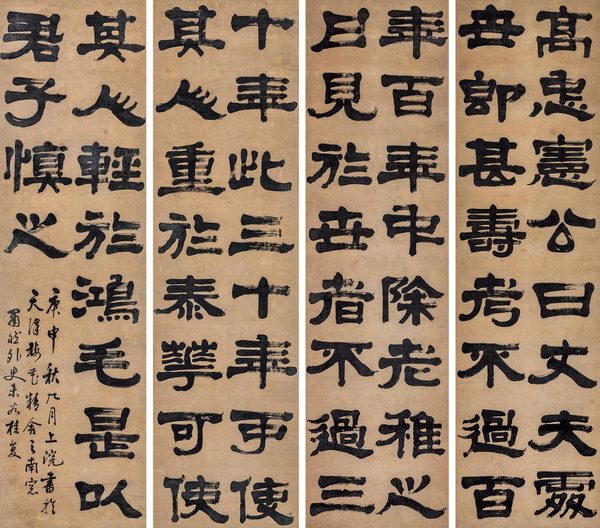 高忠憲公曰丈夫處
世即甚壽考不過百
年百年中除老稚之
日見於世者不過三
十年此三十年可使
其人重於泰華可使
其人輕於鴻毛是以
君子慎之
庚申秋九月上浣書於
天澤梅花精舍之南窗
肅然外史未谷桂复